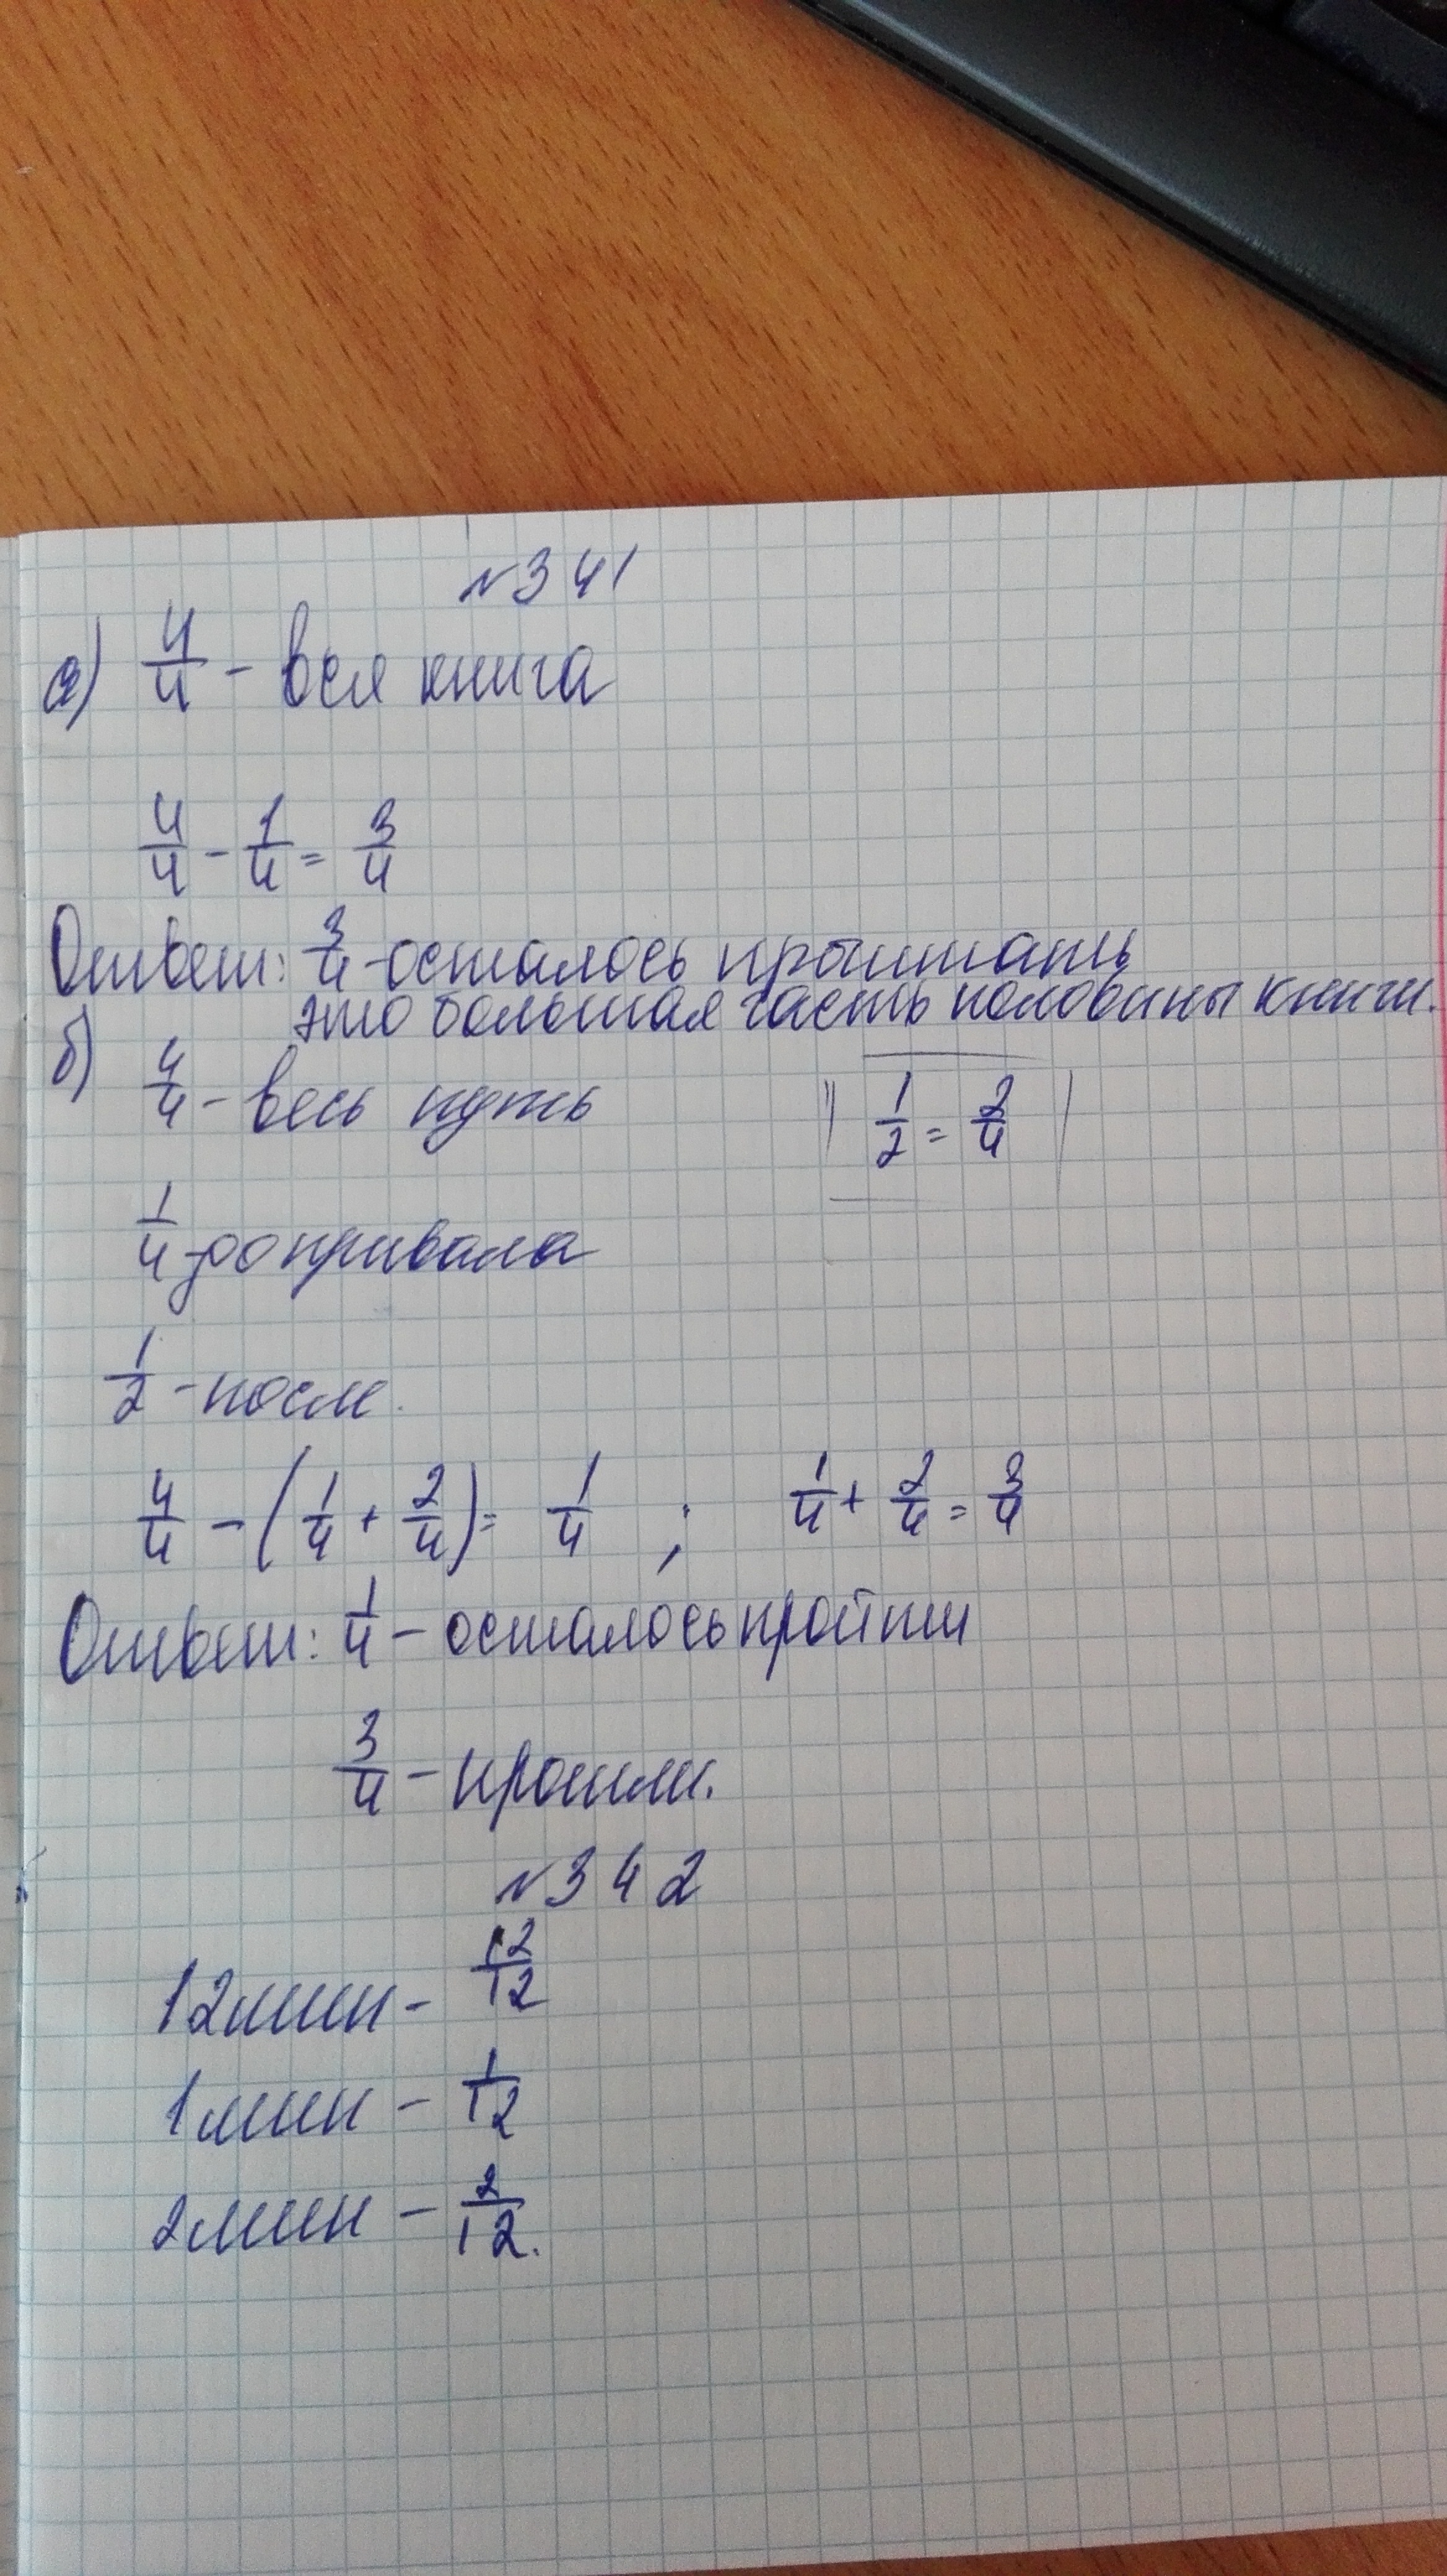 №341
а) 4/4 - вся книга
4/4 - 1/4 = 3/4
Ответ: 3/4 - осталось прочитать
это большая часть половины книги.
б) 4/4 - весь путь
1/2 = 2/4
1/4 - до привала
1/2 - после.
4/4 - (1/4 + 2/4) = 1/4 ; 1/4 + 2/4 = 3/4
Ответ: 1/4 - осталось пройти
3/4 - прошли.
№342
12мин - 12/12
1мин - 1/12
2мин - 2/12.